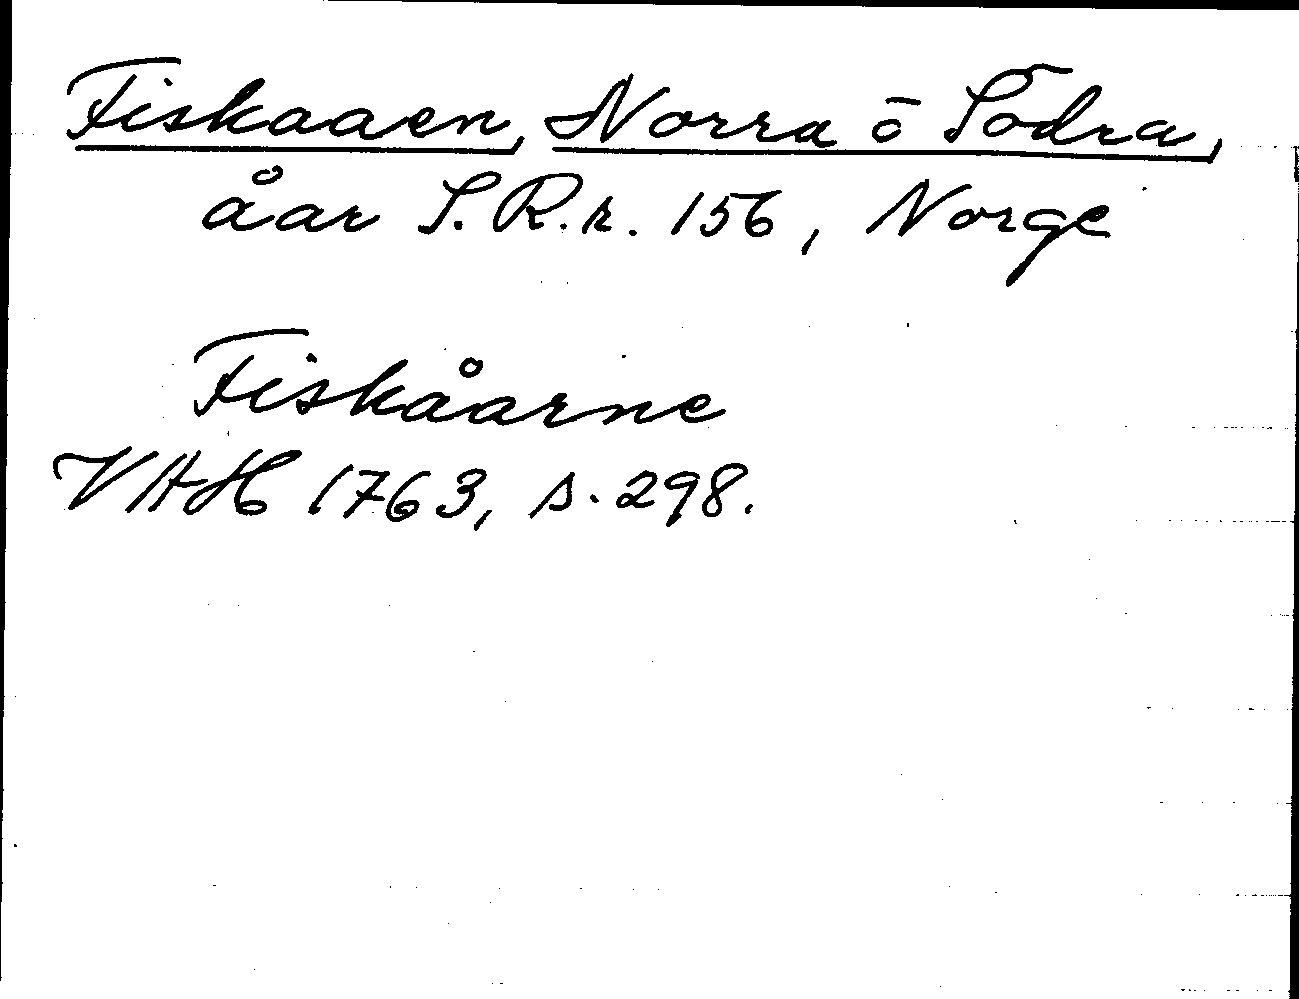 Fiskaaen, Norra ō Södra,
åar S.R.r. 156, Norge
Fiskåarne
VAH 1763, s. 298.